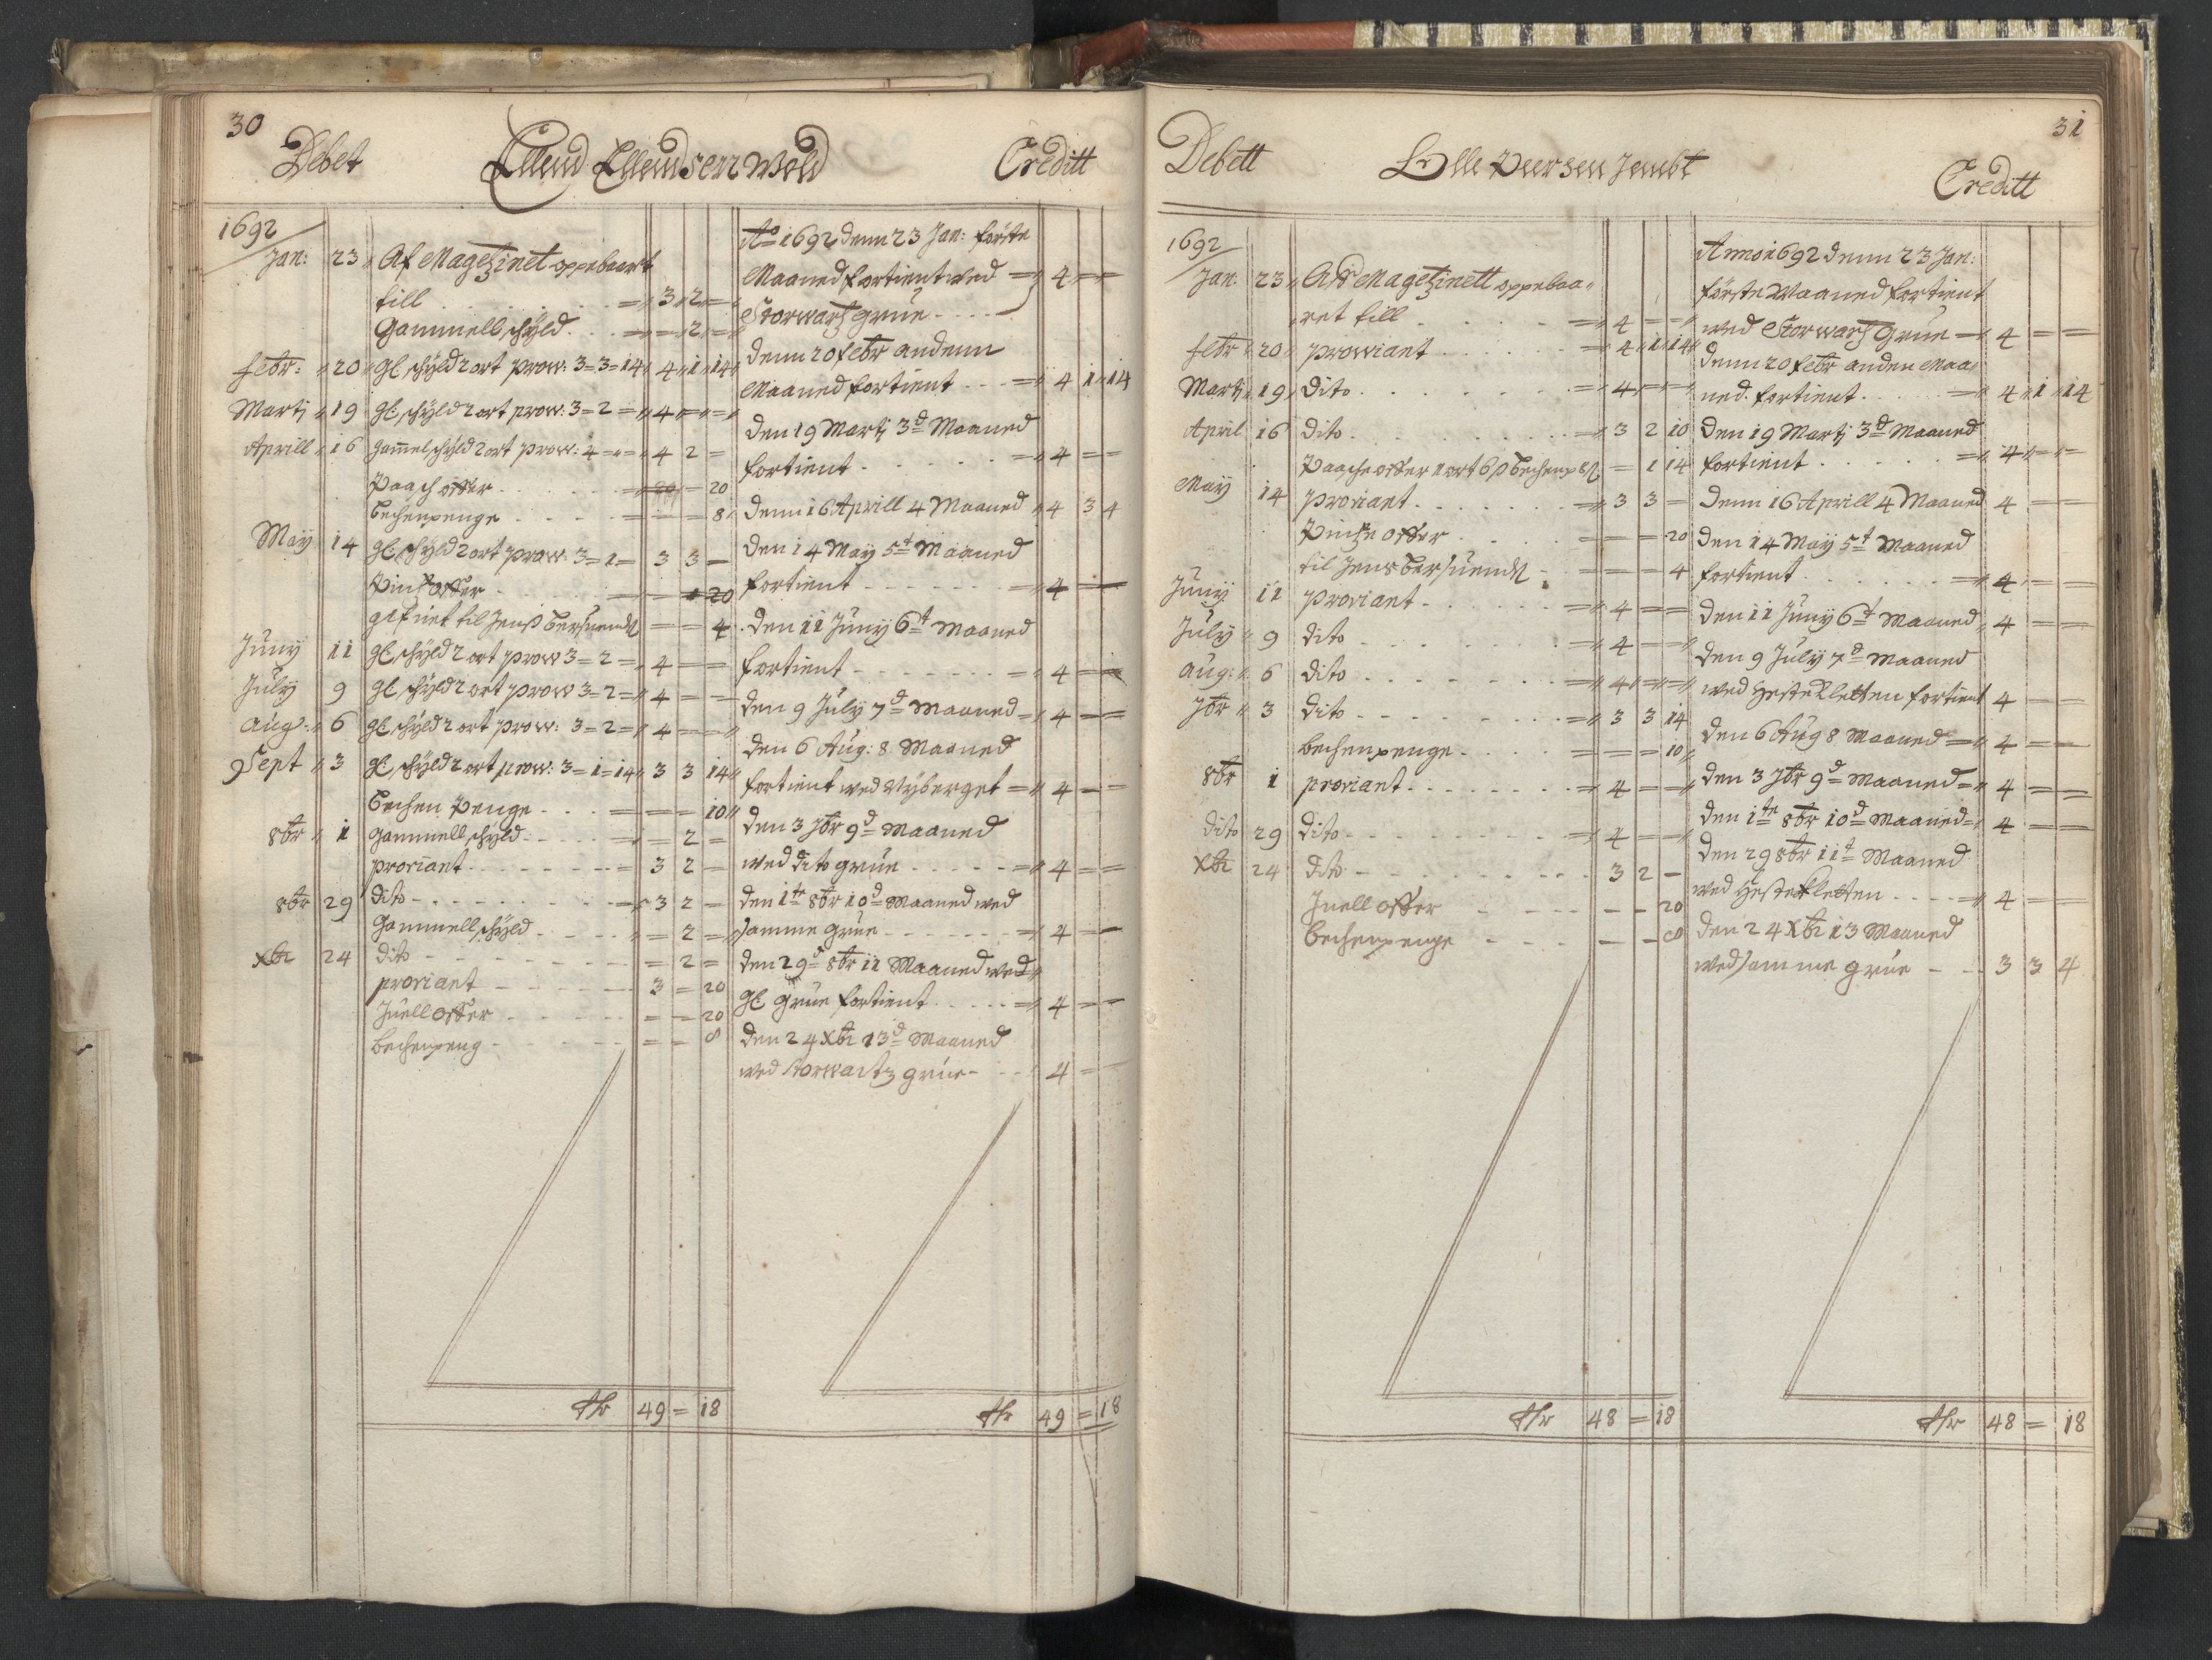 30
Debet Ellend Ellendsen Wold Creditt
1692
Jan: 23 Af Magetzinet oppebaart
till = 3 2 =
Gammell schyld = = 2 =
Febr: 20 gl schyld 2 ort prow: 3=3=14 4 1 14
Martj 19 gl: schyld 2 ort prow: 3=2= 4 = =
Aprill 16 Gam̄el schyld 2 ort prow: 4== 4 2 =
Paasch offer = = 20
bechenpenge = = 8
May 14 gl: schyld 2 ort prow: 3=1= 3 3 =
Pintz offer = = 20
gifuet til Jens = = 4
Juny 11 gl schyld 2 ort prow 3=2= 4 = =
July 9 gl schyld 2 ort prow 3=2= 4 = =
Aug: 6 gl schyld 2 ort prow: 3=2= 4 = =
Sept 3 gl: schyld 2 ort prow: 3=1=14 3 3 14
bechen Penge = = 10
8br 1 Gammell schyld = 2 =
proviant 3 2 =
8br 29 dito 3 2 =
Gammell schyld = 2 =
xbr 24 dito = 2 =
proviant 3 = 20
Juell offer = = 20
bechenpeng = = 8
thr 49 = 18
Ao 1692 denn 23 Jan: förste
Maaned fortient wed 4 = =
Storwartz grue
denn 20 Febr andenn
Maaned fortient 4 1 14
den 19 Martj 3d Maaned
fortient 4 = =
denn 16 Aprill 4 Maaned 4 3 4
den 14 May 5t Maaned
fortient 4 = =
den 11 Juny 6t Maaned
fortient 4 = =
den 9 July 7d Maaned 4 = =
den 6 Aug: 8 Maaned
fortient wed Nyberget 4 = =
den 3 7br 9d Maaned
wed dito grue 4 = =
den 1te 8br 10d Maaned wed
samme grue 4 = =
den 29d 8br 11 Maaned wed
gl: grue fortient 4 = =
den 24 xbr 13d Maaned
wed storwartz grue 4 = =
thr 49 = 18
31
Debett Olle Peersen Jembt Creditt
1692
Jan: 23 Aff Magetzinett oppebaa
ret till 4 = =
Febr 20 prowiant 4 1 14
Martj 19 dito 4 = =
April 16 dito 3 2 10
Paasche offer 1 ort 6 β bechenp 8 β = 1 14
May 14 proviant 3 3 =
Pintze offer = = 20
til Jens = = 4
Juny 11 proviant 4 = =
July 9 dito 4 = =
Aug: 6 dito 4 = =
7br 3 dito 3 3 14
bechenpenge = = 10
8br 1 proviant 4 = =
dito 29 dito 4 = =
xbr 24 dito 3 2 =
Juell offer = = 20
bechenpenge = = 8
thr 48 = 18
Anno 1692 denn 23 Jan:
förste Maaned fortient
wed Storwartz Grue 4 = =
denn 20 Febr anden Maa
ned fortient 4 1 14
den 19 Martj 3d Maaned
fortient 4 = =
denn 16 Aprill 4 Maaned 4 = =
den 14 May 5t Maaned
fortient 4 = =
den 11 Juny 6t Maaned 4 = =
den 9 July 7d Maaned
wed Hestekletten fortient 4 = =
den 6 Aug 8 Maaned 4 = =
den 3 7br 9d Maaned 4 = =
den 1te 8br 10d Maaned 4 = =
den 29 8br 11t Maaned
wed Hestekletten 4 = =
den 24 xbr 13 Maaned
wed samme grue 3 3 4
thr 48 = 18